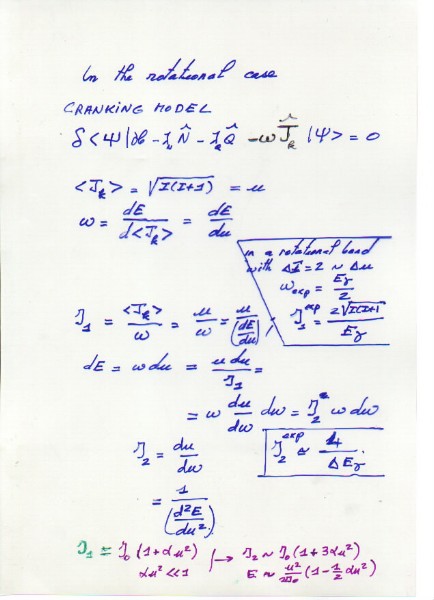 In the rotational case
CRANKING MODEL
δ<Ψ|ℋ - λₙN̂ - λ_q Q̂ - ωĴ_k |Ψ> = 0
<J_k> = √I(I+1) = u
ω = dE / d<J_k> = dE / du
in a rotational band
with ΔI = 2 ~ Δu
ω_exp = E_γ / 2
ℐ₁^exp = 2√I(I+1) / E_γ
ℐ₁ = <J_k> / ω = u / ω = u / (dE/du)
dE = ω du = u du / ℐ₁ =
= ω du/dω dω = ℐ₂ ω dω
ℐ₂ = du / dω
ℐ₂^exp ≃ 4 / ΔE_γ
= 1 / (d²E/du²)
ℐ₁ = ℐ₀ (1 + αu²) → ℐ₂ ~ ℐ₀ (1 + 3αu²)
αu² << 1 E ≈ u²/2ℐ₀ (1 - ½ αu²)